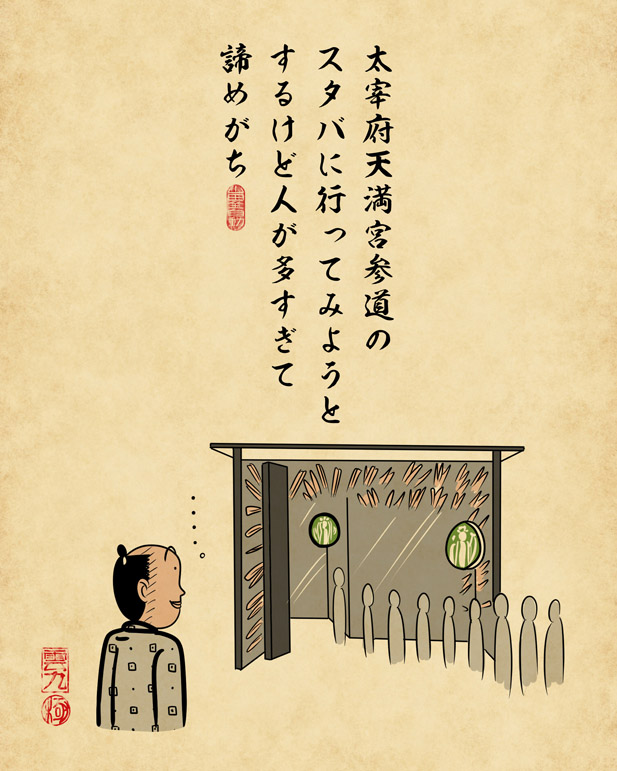 太宰府天満宮参道の
スタバに行ってみようと
するけど人が多すぎて
諦めがち